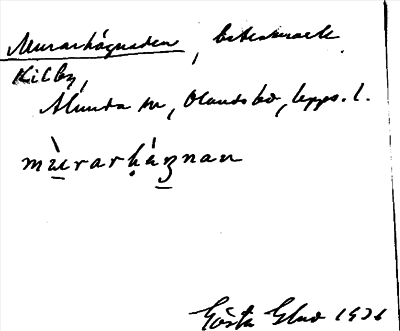 Murarhägnaden, betesmark
Kilby,
Alunda sn, Olands hd, Upps. l.
mùrarḥáʒnan
Gösta 1931